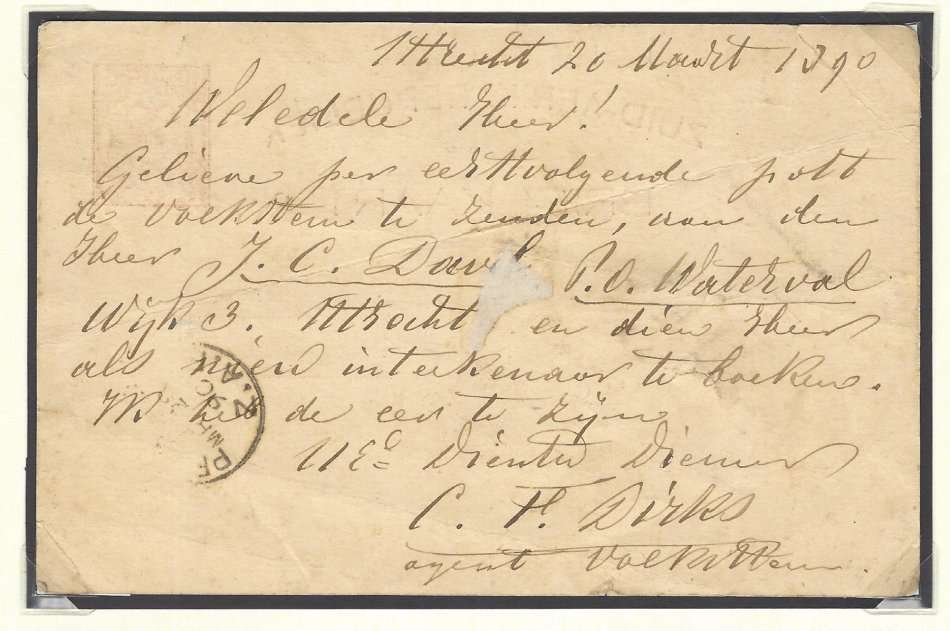 Uttrecht 20 Maart 1890
Weledele Heer!
Gelieve per eerstvolgende post
de Volksstem te zenden, aan den
Heer J. C. Davel P.O. Waterval
Wijk 3. Uttrecht en dien Heer
als nieu intekenaar te boeken.
heb de eer te zijn
UEd Dienstw Dienaar
C. F. Dirks
agent Volksstem.
Z. AF
MR 2
90
ZUID